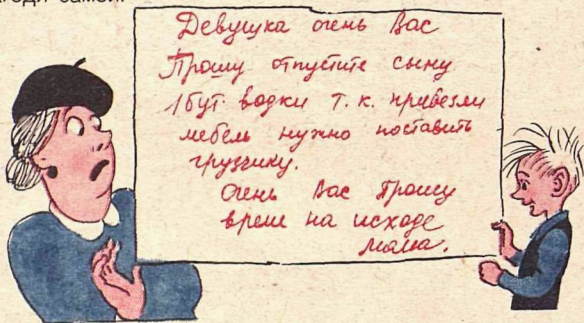 годи самой.
Девушка очень Вас
Прошу отпустите сыну
1 бут. водки т. к. привезли
мебель нужно поставить
грузчику.
Очень Вас Прошу
време на исходе
мама.